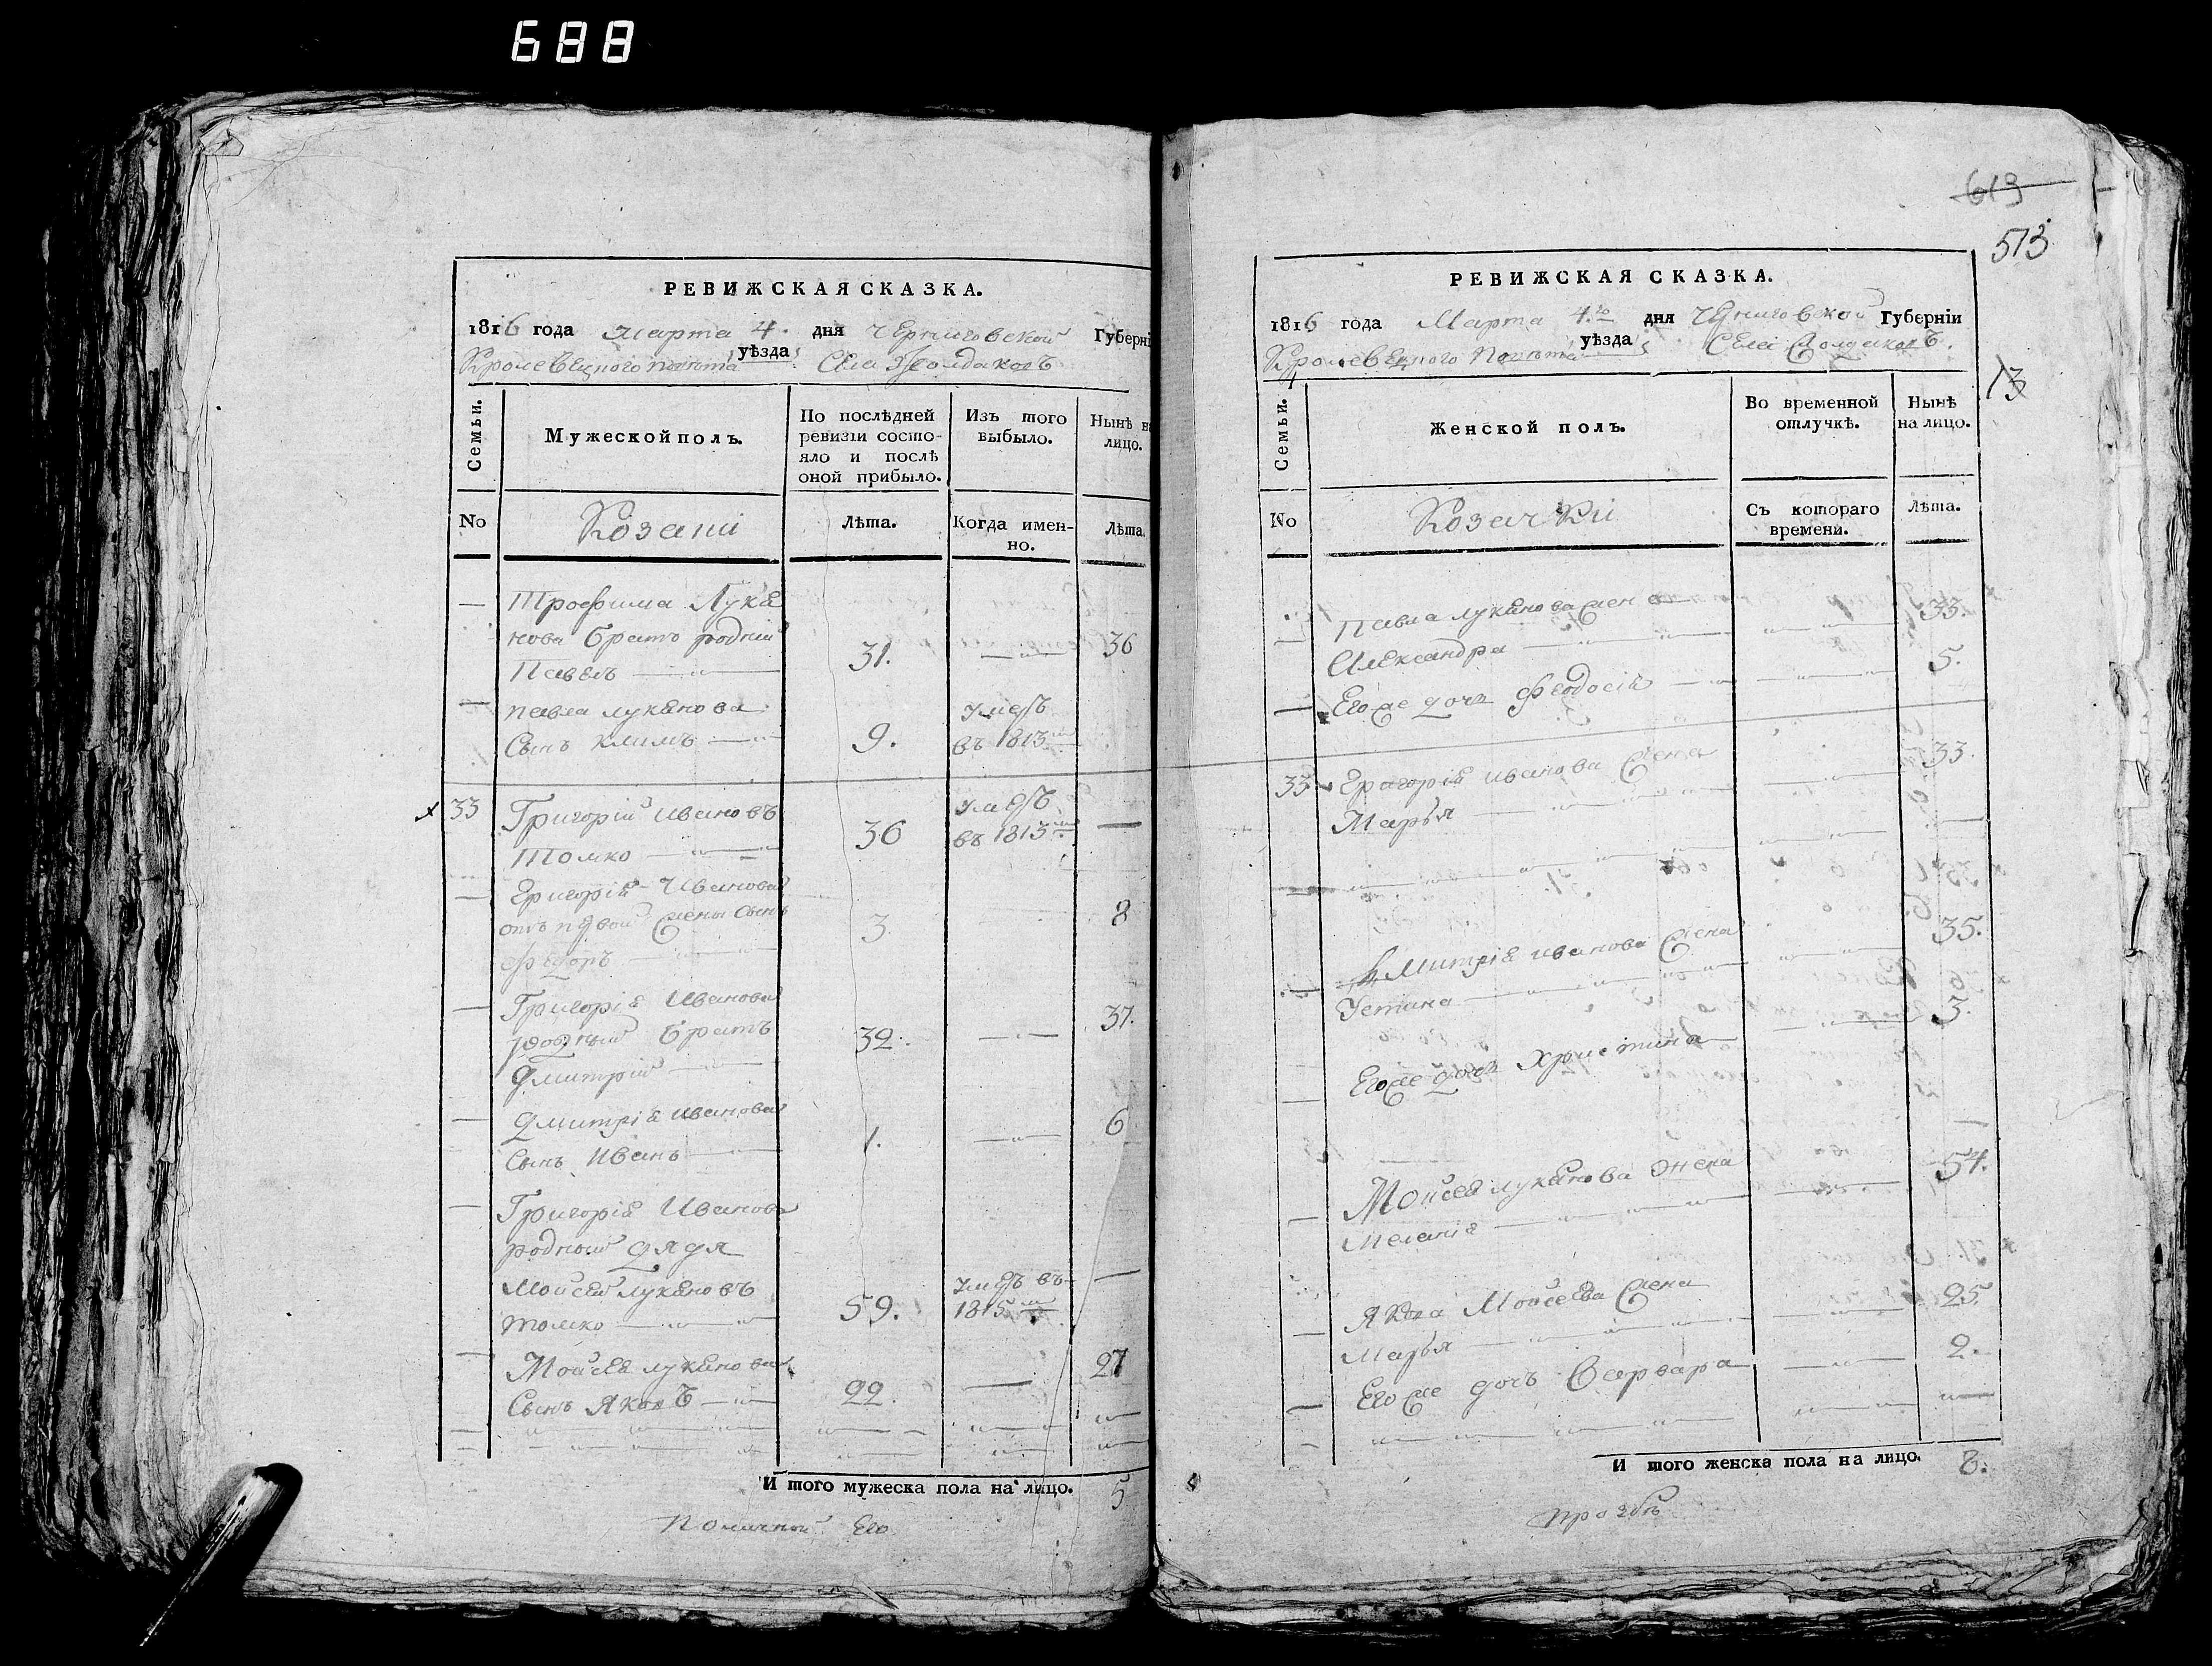 688
РЕВИЖСКАЯ СКАЗКА.
1816 года марта 4. дня Черниговской Губерні
Кролевецкого повѣта уѣзда
Семьи.
Мужеской полъ.
По послѣдней ревизіи состояло и послѣ оной прибыло.
Изъ того выбыло.
Нынѣ на лицо.
No
Козаки
Лѣта.
Когда именно.
Лѣта.
— Трофима Лукя
нова братъ родній
Павелъ 31. — 36
— Павла лукянова
Сынъ климъ 9. умеръ
въ 1813
33 Григорій ивановъ
Томко 36 умеръ
въ 1813 —
— Григорія Иванова
отъ первой жены сынъ
Федоръ 3 8
— Григорія Иванова
родный братъ
Дмитрій 32. — 37.
— Дмитрія иванова
Сынъ Иванъ 1. — 6
— Григорія Иванова
родный дядя
Мойсей лукяновъ
томко 59. умеръ въ
1815 —
— Мойсея лукянова
Сынъ Яковъ 22. — 27
И того мужеска пола на лицо. 5
Его
613
513
13
РЕВИЖСКАЯ СКАЗКА.
1816 года Марта 4го дня Черниговской Губерніи
Кролевецкого Повѣта уѣзда
Семьи.
Женской полъ.
Во временной отлучкѣ.
Нынѣ на лицо.
No
Козачки
Съ котораго времени.
Лѣта.
Павла лукянова жена
Александра 33.
— Его же дочь Феодосія 5.
33 Григорія иванова жена
Марья 33.
Дмитрія иванова жена
Устина 35.
— Его же дочь Христина 3.
— Мойсея лукянова жена
Меланія 54.
— Якова Мойсеева жена
Марья 25.
— Его же дочь Варвара 2.
И того женска пола на лицо. 8.